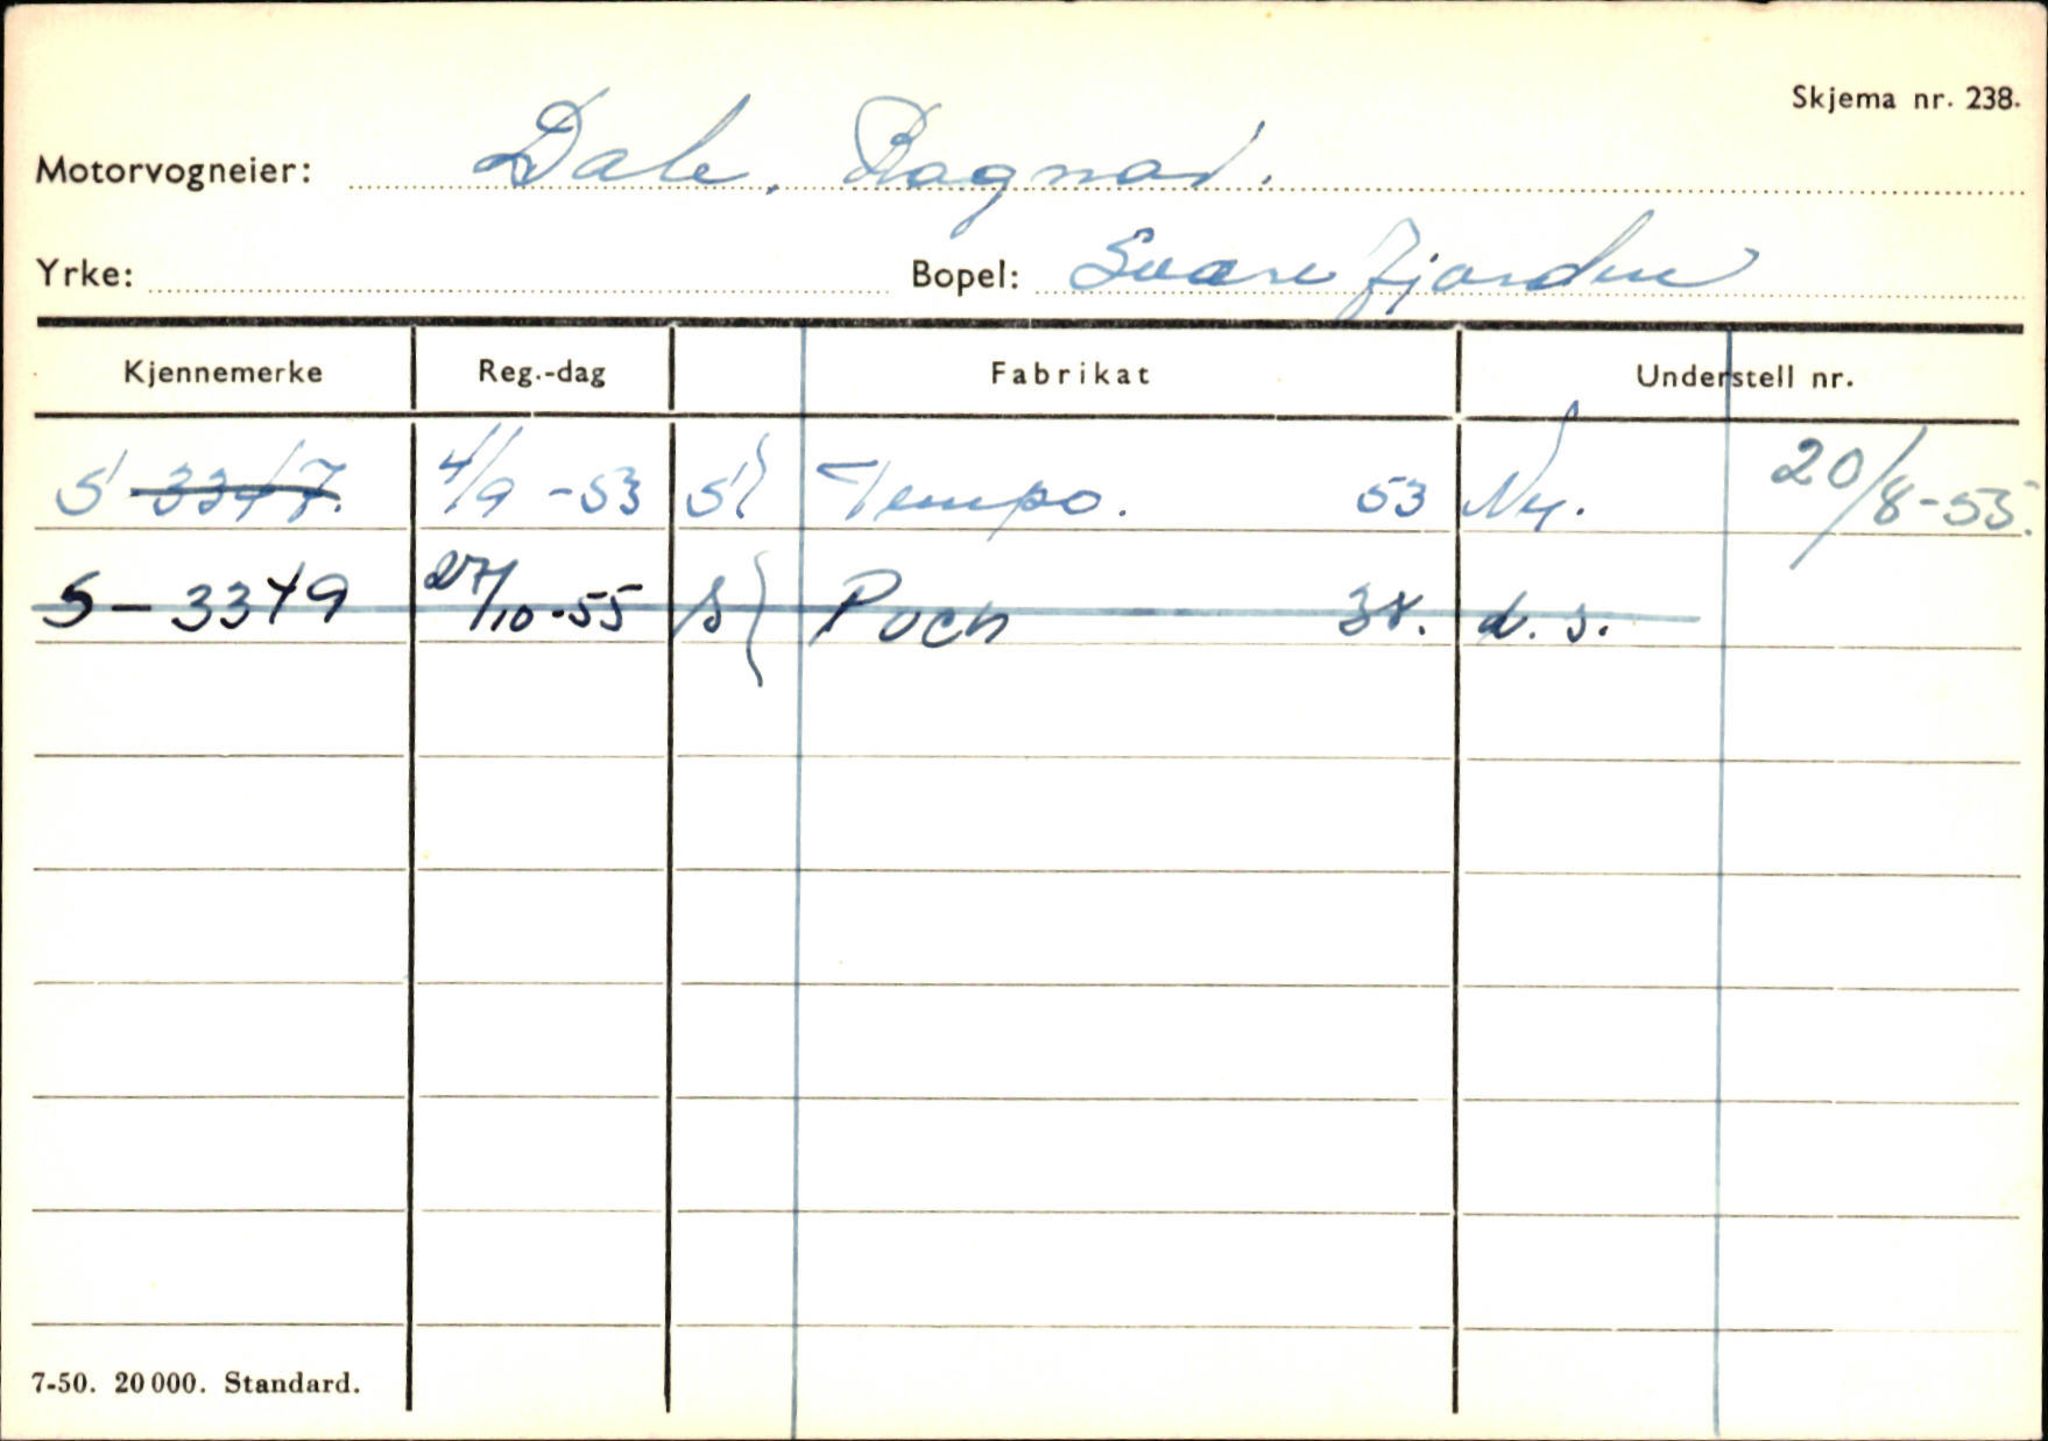 Skjema nr. 238.
Motorvogneier: Dale, Ragnar.
Yrke: Bopel: Sværefjorden
Kjennemerke Reg.-dag Fabrikat Understell nr.
S-3347. 4/9-53 S Tempo. 53 Ny. 20/8-55.
S-3349 27/10-55 S Puch 38. d.s.
7-50. 20 000. Standard.